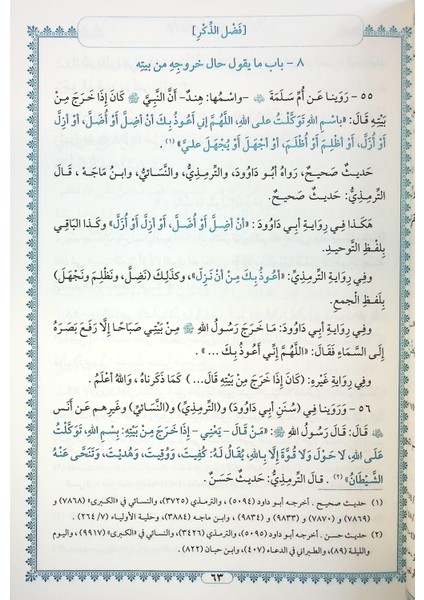 [فَضْل الذِّكْرِ]
٨ - باب ما يقول حال خروجِهِ من بيتِه
٥٥ - رَوَينا عَن أُم سَلَمَةَ ﵂ -واسمُها: هِندٌ- أَنَّ النَّبِيَّ ﷺ كَانَ إِذَا خَرَجَ مِنْ
بَيْتِهِ قَالَ: «بِاسْمِ اللهِ تَوَكَّلْتُ على اللهِ، اللَّهُمَّ إني أَعُوذُ بِكَ أنْ أَضِلَّ أَوْ أُضَلَّ، أَوْ أَزِلَّ
أَوْ أُزَلَّ، أَوْ أَظْلِمَ أَوْ أُظْلَمَ، أَوْ أَجْهَلَ أَوْ يُجْهَلَ عليَّ» (١).
حَدِيثٌ صَحِيحٌ، رَوَاهُ أَبُو دَاوُودَ، والتِّرمِذِيُّ، والنَّسَائِيُّ، وابنُ مَاجَهْ، قَالَ
التِّرمِذِيُّ: حَدِيثٌ صَحِيحٌ.
هَكَذا فِي رِوَايَةِ أَبِي دَاوُودَ: «أنْ أَضِلَّ أَوْ أُضَلَّ، أَوْ أَزِلَّ أَوْ أُزَلَّ» وكَذا البَاقِي
بِلَفظِ التَّوحِيدِ.
وفِي رِوَايَةِ التِّرمِذِيِّ: «أَعُوذُ بِكَ مِنْ أنْ نَزِلَّ»، وكذلِكَ (نَضِلَّ، ونَظْلِمَ ونَجْهَلَ)
بِلَفظِ الجمعِ.
وفِي رِوَايَةِ أبي دَاوُدَ: مَا خَرَجَ رَسُولُ اللهِ ﷺ مِنْ بَيْتِي صَبَاحًا إلَّا رَفَعَ بَصَرَهُ
إلَى السَّمَاءِ فَقَالَ: «اللَّهُمَّ إِنِّي أَعُوذُ بِكَ ... ».
وفِي رِوَايَةِ غَيْرِهِ: (كَانَ إذَا خَرَجَ مِنْ بَيْتِهِ قَالَ... ) كَمَا ذَكَرناهُ، واللهُ أَعْلَمُ.
٥٦ - وَرَوَينا فِي (سُنَنِ أبِي دَاوُدَ) و(التِّرمِذِيِّ) و(النَّسَائِيِّ) وغَيرِهِم عَن أَنَسٍ
﵁ قَالَ: قَالَ رَسُولُ اللهِ ﷺ: «مَنْ قَالَ - يَعْنِي - إذَا خَرَجَ مِنْ بَيْتِهِ: بِسْمِ اللهِ، تَوَكَّلْتُ
عَلَى اللهِ، لَا حَوْلَ وَلَا قُوَّةَ إلَّا بِاللهِ، يُقَالُ لَهُ: كُفِيتَ، وَوُقِيتَ، وَهُدِيتَ، وَتَنَحَّى عَنْهُ
الشَّيْطَانُ» (٢). قَالَ التِّرمِذِيُّ: حَدِيثٌ حَسَنٌ.
(١) حديث صحيح. أخرجه أبو داود (٥٠٩٤)، والترمذي (٣٧٢٥)، والنسائي في «الكبرى» (٧٨٦٨)
و(٧٨٦٩) و(٧٨٧٠) و(٩٨٣٣) و(٩٨٣٤)، وابن ماجه (٣٨٨٤)، وحلية الأولياء (٧/ ٢٦٤).
(٢) حديث حسن. أخرجه أبو داود (٥٠٩٥)، والترمذي (٣٤٢٦)، والنسائي في «الكبرى» (٩٩١٧)، واليوم
والليلة (٨٩)، والطبراني في الدعاء (٤٠٧)، وابن حبان (٨٢٢).
٦٣